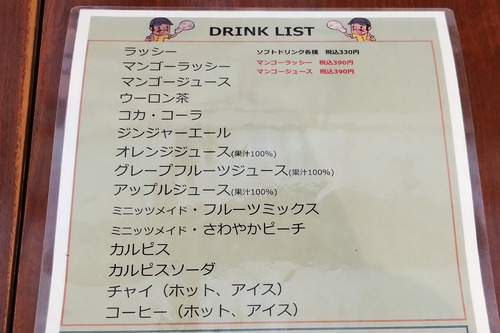 DRINK LIST
ラッシー ソフトドリンク各種 税込330円
マンゴーラッシー マンゴーラッシー 税込390円
マンゴージュース マンゴージュース 税込390円
ウーロン茶
コカ・コーラ
ジンジャーエール
オレンジジュース(果汁100%)
グレープフルーツジュース(果汁100%)
アップルジュース(果汁100%)
ミニッツメイド・フルーツミックス
ミニッツメイド・さわやかピーチ
カルピス
カルピスソーダ
チャイ（ホット、アイス）
コーヒー（ホット、アイス）